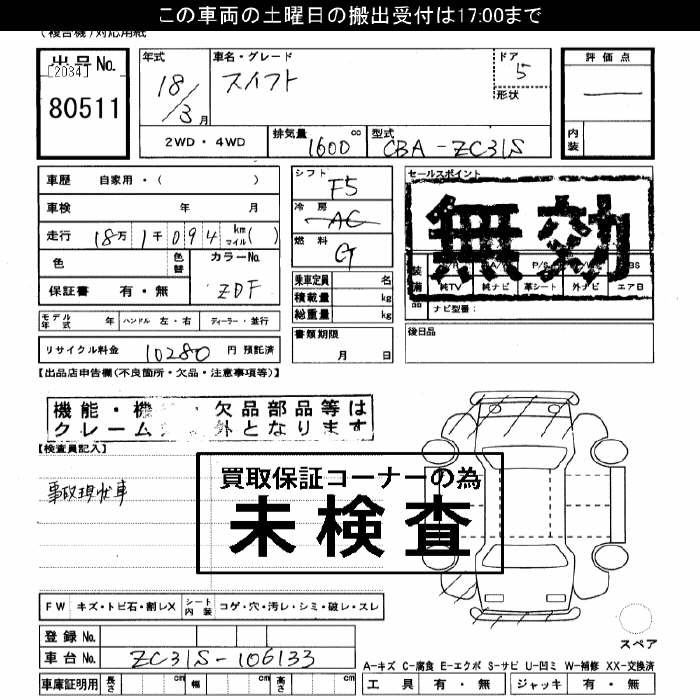 この車両の土曜日の搬出受付は17:00まで
(複合機)対応用紙
出品No.
[2034]
80511
年式
18/3月
車名・グレード
スイフト
ドア
5
形状
評価点
内装
2WD・4WD
排気量
1600 cc
型式
CBA-ZC31S
車歴 自家用・( )
車検 年 月
走行 18万1千094 km マイル( )
色
色替
カラーNo.
ZDF
保証書 有・無
シフト
F5
冷房
AC
燃料
G
乗車定員 名
積載量 kg
総重量 kg
セールスポイント
無効
装備品
純TV 純ナビ 革シート 外ナビ エアB
ナビ型番:
モデル年式 年 ハンドル 左・右 ディーラー・並行
リサイクル料金 10280 円 預託済
書類期限
月 日
後日品
【出品店申告欄(不良箇所・欠品・注意事項等)】
機能・機 ・欠品部品等は
クレーム 外となります
【検査員記入】
事故現状車
買取保証コーナーの為
未検査
FW キズ・トビ石・割レX シート内装 コゲ・穴・汚レ・シミ・破レ・スレ
登録No.
車台No. ZC31S-106133
スペア
A-キズ C-腐食 E-エクボ S-サビ U-凹ミ W-補修 XX-交換済
車庫証明用 長さ cm 幅 cm 高さ cm
工具 有・無 ジャッキ 有・無